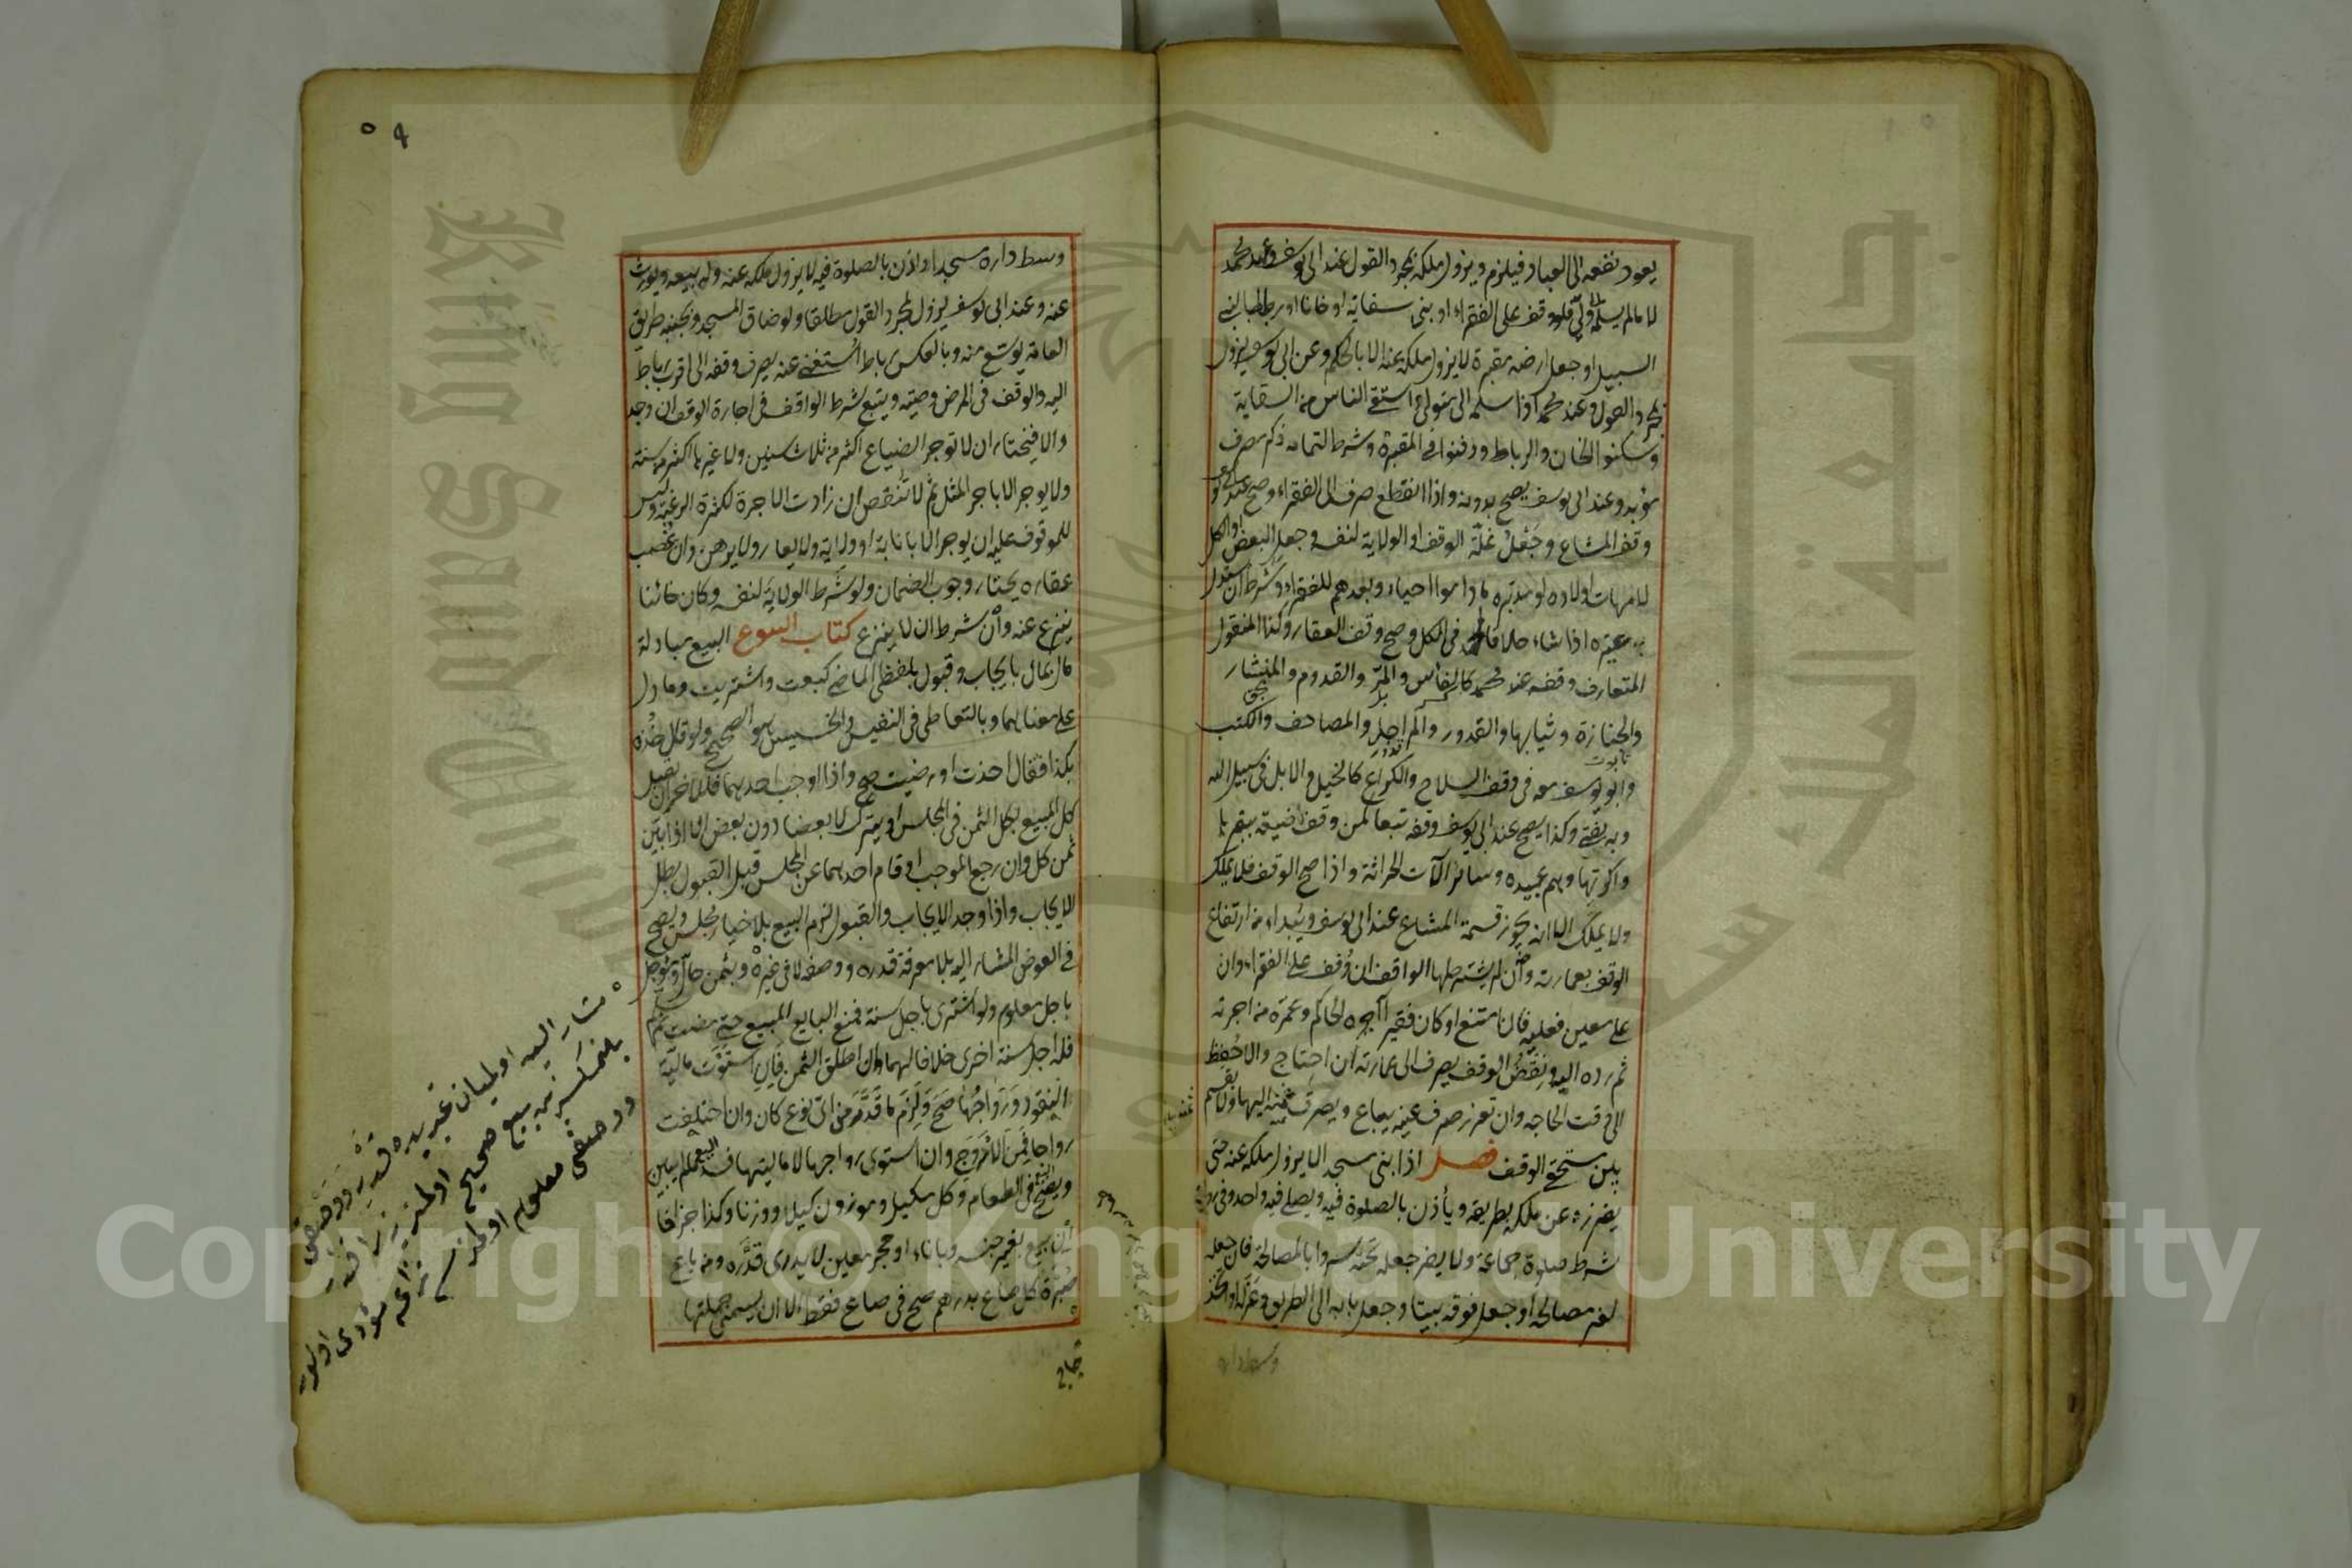 يعود نفعه الى العباد فيلزم ويزول ملكه بمجرد القول عند ابى يوسف وعند محمد
لا ما لم يسلمه الى ولى فلو وقف على الفقراء او بنى سقاية او خانا او رباطا لبنى
السبيل او جعل ارضه مقبرة لا يزول ملكه عنه الا بالحكم وعن ابى يوسف يزول
بمجرد القول وعند محمد اذا سلمه الى متولى واستقى الناس من السقاية
وسكنوا الخان والرباط ودفنوا فى المقبرة وشرط لتمامه ذكر مصرف
مؤبد وعند ابى يوسف يصح بدونه واذا انقطع صرف الى الفقراء وصح عند ابى يوسف
وقف المشاع وجعل غلة الوقف او الولاية لنفسه وجعل البعض او الكل
لامهات اولاده او مدبريه ما داموا احياء وبعدهم للفقراء وشرط ان يستبدل
به غيره اذا شاء خلافا لمحمد فى الكل وصح وقف العقار وكذا المنقول
المتعارف وقفه عند محمد كالفأس والمر والقدوم والمنشار
والجنازة وثيابها والقدور والمراجل والمصاحف والكتب
تابوت
وابو يوسف معه فى وقف السلاح والكراع كالخيل والابل فى سبيل الله
وبه يفتى وكذا يصح عند ابى يوسف وقفه تبعا كمن وقف ضيعته ببقرها
واكرتها وهم عبيده وسائر آلات الحراثة واذا صح الوقف فلا يملك
ولا يملك الا انه يجوز قسمة المشاع عند ابى يوسف ويبدأ من ارتفاع
الوقف بعمارته وان لم يشترطها الواقف ان وقف على الفقراء وان
على معين فعليه فان امتنع او كان فقيرا آجره الحاكم وعمره من اجرته
ثم رده اليه ونقض الوقف يصرف الى عمارته ان احتاج والا حفظ
الى وقت الحاجه وان تعذر صرف عينه يباع ويصرف ثمنه اليها ولا يقسم
بين مستحق الوقف فصل اذا بنى مسجدا لا يزول ملكه عنه حتى
يفرزه عن ملكه بطريقه ويأذن بالصلوة فيه ويصلى فيه واحد وفى رواية
شرط صلوة جماعة ولا يضر جعله تحته سردابا لمصالحه فان جعله
لغير مصالحه او جعل فوقه بيتا وجعل بابه الى الطريق وعزله او اتخذ
وسط داره
وسط داره مسجدا واذن بالصلوة فيه لا يزول ملكه عنه وله بيعه ويورث
عنه وعند ابى يوسف يزول بمجرد القول مطلقا ولو ضاق المسجد وبجنبه طريق
العامة يوسع منه وبالعكس رباط استغنى عنه يصرف وقفه الى اقرب رباط
اليه والوقف فى المرض وصية ويتبع شرط الواقف فى اجارة الوقف ان وجد
والا فيختار ان لا توجر الضياع اكثر من ثلاث سنين ولا غيرها اكثر من سنة
ولا يوجر الا باجر المثل ثم لا تنقض ان زادت الاجرة لكثرة الرغبة وليس
للموقوف عليه ان يوجر الا بانابة او ولاية ولا يعار ولا يرهن وان غصب
عقاره يختار وجوب الضمان ولو شرط الولاية لنفسه وكان خائنا
ينزع عنه وان شرط ان لا ينزع كتاب البيوع البيع مبادلة
مال بمال بايجاب وقبول بلفظى الماضى كبعت واشتريت وما دل
على معناهما وبالتعاطى فى النفيس والخسيس هو الصحيح ولو قال خذه
بكذا فقال اخذت او رضيت صح واذا اوجب احدهما فللاخر ان يقبل
كل المبيع بكل الثمن فى المجلس او يترك لا بعضا دون بعض الا اذا بين
ثمن كل وان رجع الموجب او قام احدهما عن المجلس قبل القبول بطل
الايجاب واذا وجد الايجاب والقبول لزم البيع بلا خيار مجلس ويصح
فى العوض المشار اليه بلا معرفة قدره ووصفه لا فى غيره وبثمن حال ومؤجل
باجل معلوم ولو اشترى باجل سنة فمنع البايع المبيع حتى مضت ثم سلم
فله اجل سنة اخرى خلافا لهما وان اطلق الثمن فان استوت مالية
النقود ورواجها صح ولزم ما قدر من اى نوع كان وان اختلفت
رواجا فمن الاروج وان استوى رواجها لا ماليتها فسد البيع ما لم يبين
ويصح فى الطعام وكل مكيل وموزون كيلا ووزنا وكذا جزافا
ان بيع بغير جنسه وباناء او حجر معين لا يدرى قدره ومن باع
صبرة كل صاع بدرهم صح فى صاع فقط الا ان يسمى جملتها
مشار اليه اولميان غيريده قدرى ووصفى
بلنمكسزين بيع صحيح اولمز زيرا
ووصفى معلوم اولمز